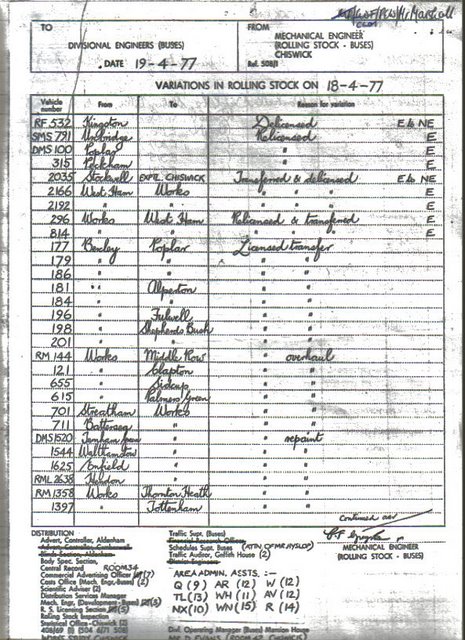 Mr Marshall
TO
FROM
DIVISIONAL ENGINEERS (BUSES)
MECHANICAL ENGINEER
(ROLLING STOCK - BUSES)
CHISWICK
DATE 19-4-77
Ref. 508/1
VARIATIONS IN ROLLING STOCK ON 18-4-77
Vehicle number From To Reason for variation
RF 532 Kingston Delicensed E & NE
SMS 791 Uxbridge Relicensed E
DMS 100 Poplar " E
315 Peckham " E
2035 Stockwell EXPTL CHISWICK Transferred & delicensed E & NE
2166 West Ham Works " " " E
2192 " " " " " E
296 Works West Ham Relicensed & transferred E
814 " " " " " E
177 Bexley Poplar Licensed transfer
179 " " " "
186 " " " "
181 " Alperton " "
184 " " " "
196 " Fulwell " "
198 " Shepherds Bush " "
201 " " " "
RM 144 Works Middle Row " overhaul
121 " Clapton " "
655 " Sidcup " "
615 " Palmers Green " "
701 Streatham Works " "
711 Battersea " " "
DMS 1520 Tottenham " " repaint
1544 Walthamstow " " "
1625 Enfield " " "
RML 2638 Hendon " " "
RM 1358 Works Thornton Heath " "
1397 " Tottenham " "
continued over
DISTRIBUTION
Advert. Controller, Aldenham
Advert. Controller, Camberwell
Body Spec. Section,
Central Record ROOM 34
Commercial Advertising Officer (7)
Costs Office (Mech. Engr-Buses) (2)
Scientific Adviser (2)
Distribution Services Manager
Mech. Engr. (Development-Buses) (3)
R. S. Licensing Section (5)
Rolling Stock Inspection
Statistical Office - 55 Broadway
408/69 (1) (504 6/71 508)
Traffic Supt. (Buses)
Financial Research Officer
Schedules Supt. Buses (ATTN OF MR HYSLOP)
Traffic Auditor, Griffith House (2)
District Engineers
AREA ADMIN. ASSTS. :-
Q (9) AR (12) W (12)
TL (13) WH (11) AV (12)
NX (10) WN (15) R (14)
Divl. Operating Manager (Buses) Mansion House
MECHANICAL ENGINEER
(ROLLING STOCK - BUSES)